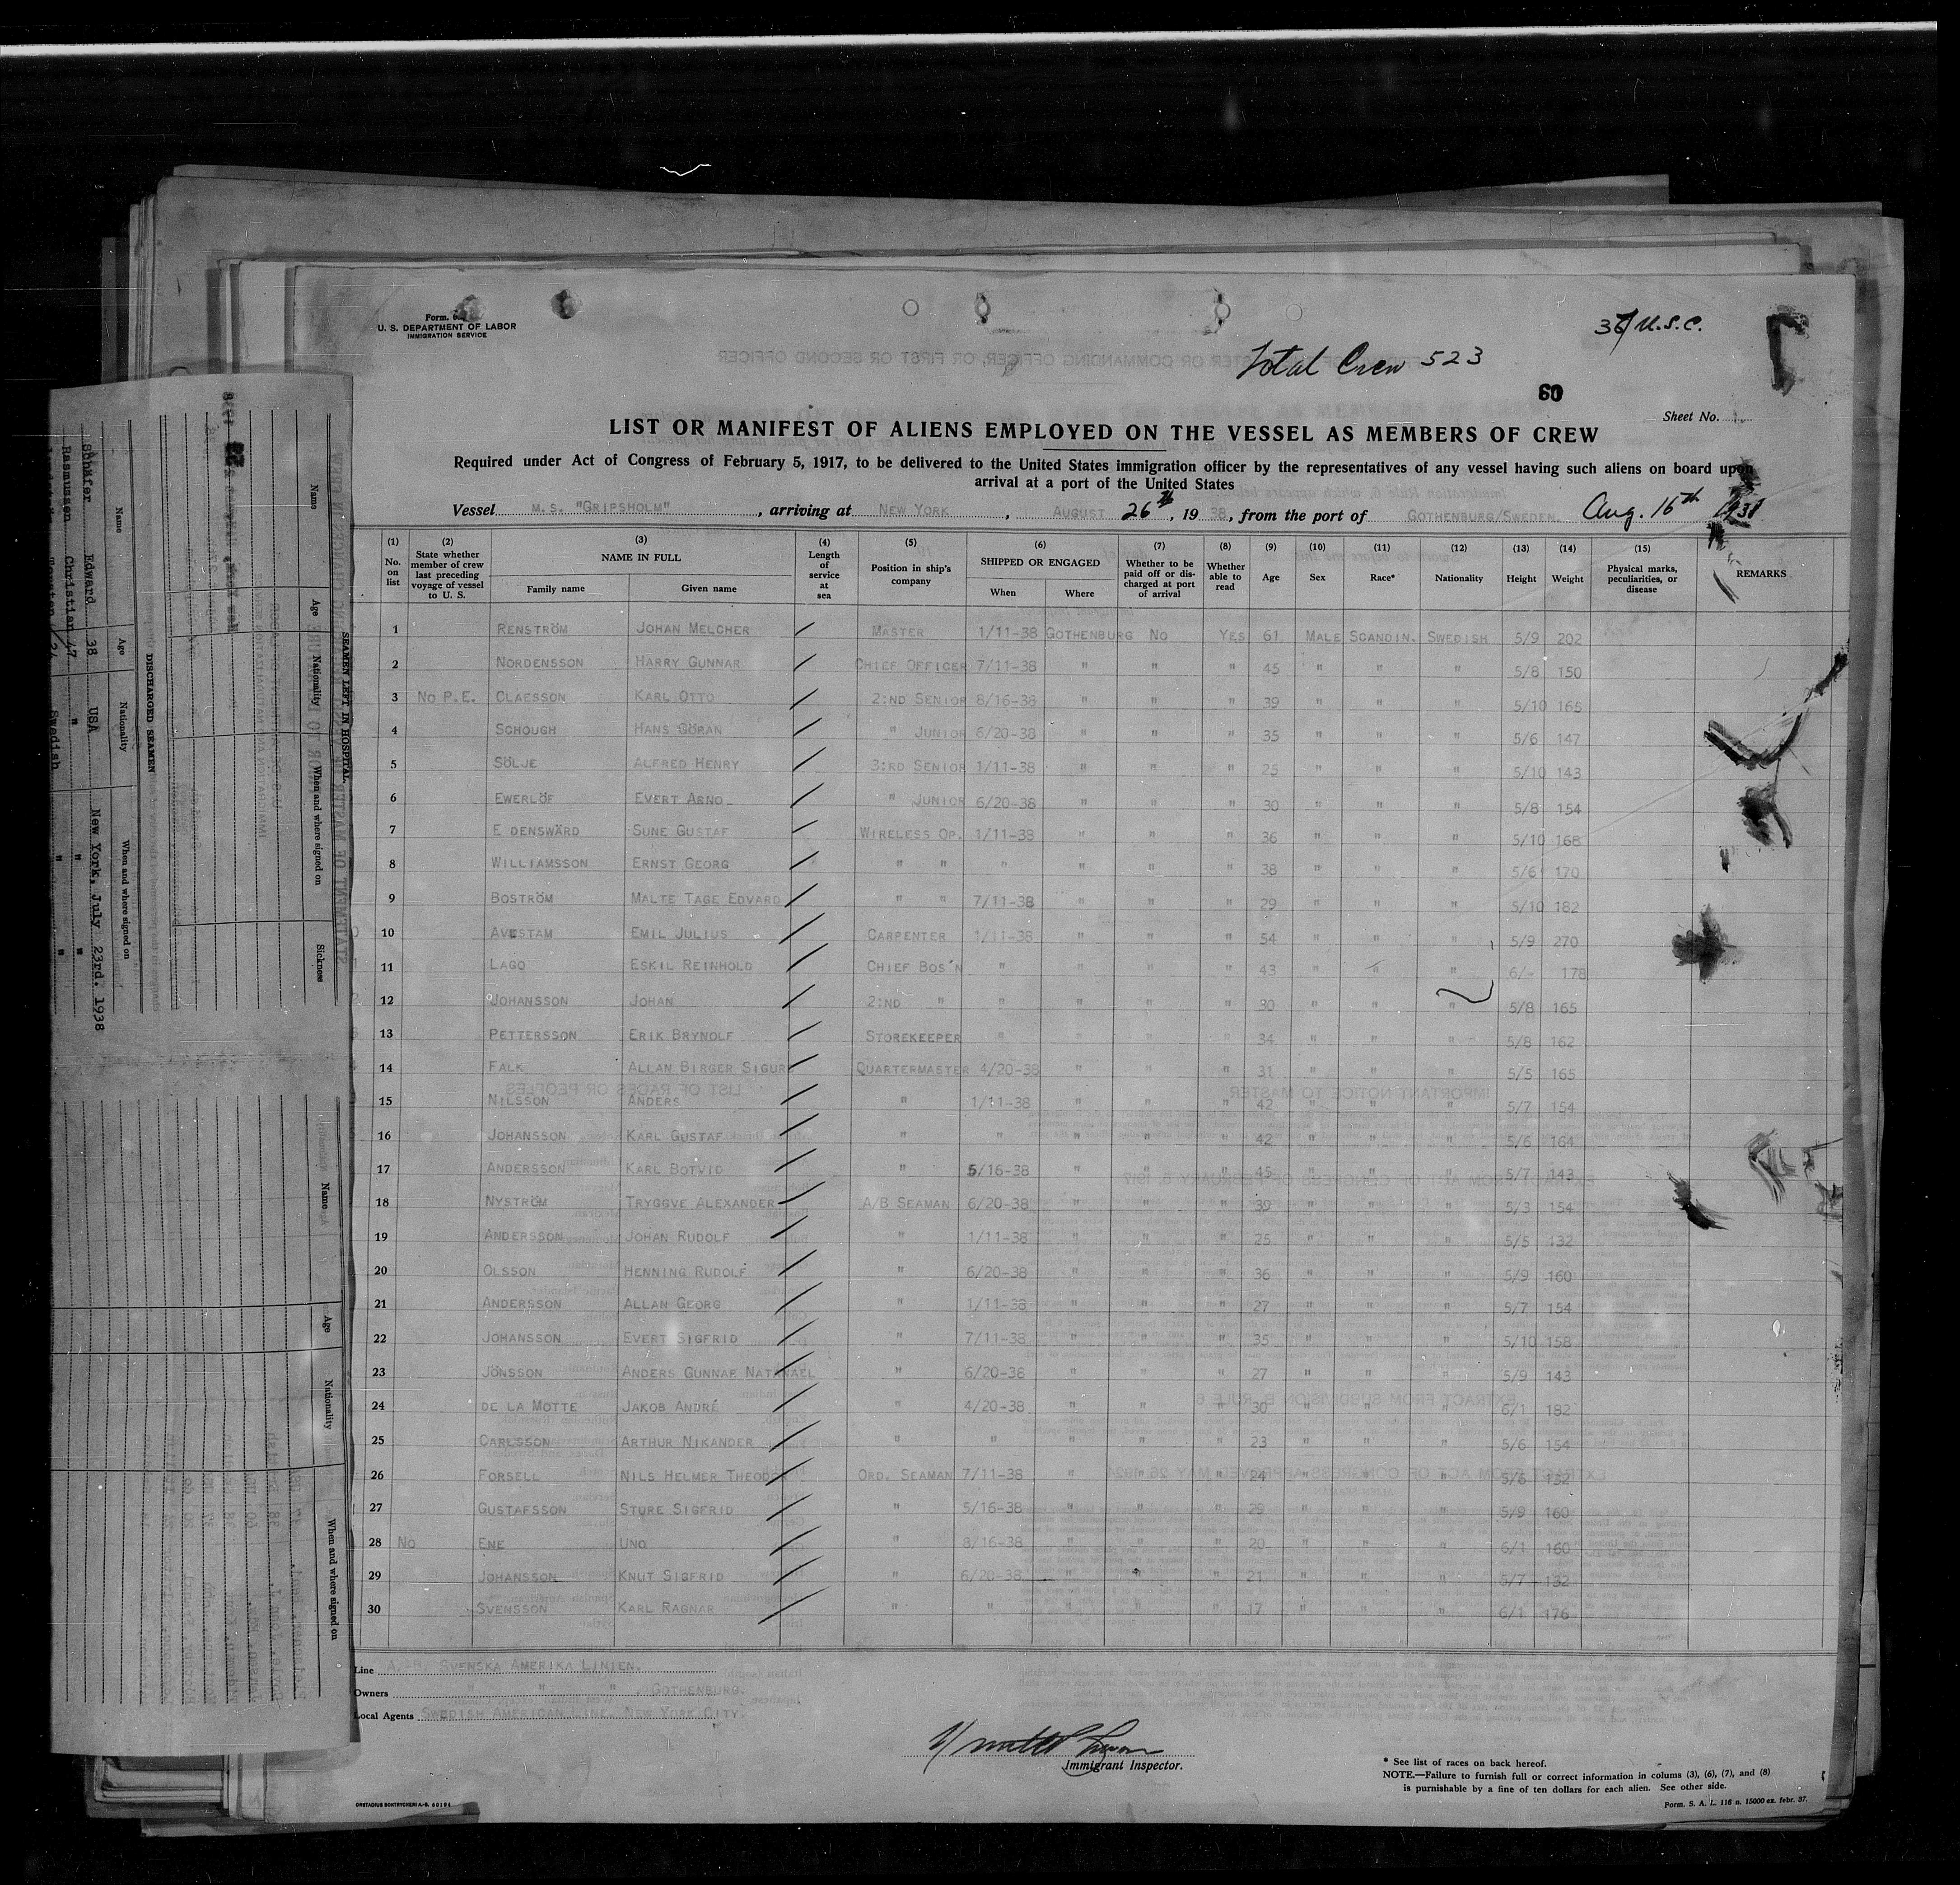 Form. 6
U. S. DEPARTMENT OF LABOR
IMMIGRATION SERVICE
U.S.C.
Total Crew 523
60
Sheet No. 1
LIST OR MANIFEST OF ALIENS EMPLOYED ON THE VESSEL AS MEMBERS OF CREW
Required under Act of Congress of February 5, 1917, to be delivered to the United States immigration officer by the representatives of any vessel having such aliens on board upon
arrival at a port of the United States
Vessel M.S. "GRIPSHOLM", arriving at NEW YORK, AUGUST 26th, 1938, from the port of GOTHENBURG/SWEDEN. Aug. 16th 1938
(1) No. on list (2) State whether member of crew last preceding voyage of vessel to U. S. (3) NAME IN FULL Family name Given name (4) Length of service at sea (5) Position in ship's company (6) SHIPPED OR ENGAGED When Where (7) Whether to be paid off or discharged at port of arrival (8) Whether able to read (9) Age (10) Sex (11) Race* (12) Nationality (13) Height (14) Weight (15) Physical marks, peculiarities, or disease REMARKS
1 RENSTRÖM JOHAN MELCHER / MASTER 1/11-38 GOTHENBURG NO YES 61 MALE SCANDIN. SWEDISH 5/9 202
2 NORDENSSON HARRY GUNNAR / CHIEF OFFICER 7/11-38 " " " 45 " " " 5/8 150
3 NO P.E. CLAESSON KARL OTTO / 2:ND SENIOR 8/16-38 " " " 39 " " " 5/10 165
4 SCHOUGH HANS GÖRAN / " JUNIOR 6/20-38 " " " 35 " " " 5/6 147
5 SÖLJE ALFRED HENRY / 3:RD SENIOR 1/11-38 " " " 25 " " " 5/10 143
6 EWERLÖF EVERT ARNO / " JUNIOR 6/20-38 " " " 30 " " " 5/8 154
7 E DENSWÄRD SUNE GUSTAF / WIRELESS OP. 1/11-38 " " " 36 " " " 5/10 168
8 WILLIAMSSON ERNST GEORG / " " " " " " 38 " " " 5/6 170
9 BOSTRÖM MALTE TAGE EDVARD / " " 7/11-38 " " " 29 " " " 5/10 182
10 AVESTAM EMIL JULIUS / CARPENTER 1/11-38 " " " 54 " " " 5/9 270
11 LAGO ESKIL REINHOLD / CHIEF BOS'N " " " " 43 " " " 6/- 178
12 JOHANSSON JOHAN / 2:ND " " " " " 30 " " " 5/8 165
13 PETTERSSON ERIK BRYNOLF / STOREKEEPER " " " " 34 " " " 5/8 162
14 FALK ALLAN BIRGER SIGUR / QUARTERMASTER 4/20-38 " " " 31 " " " 5/5 165
15 NILSSON ANDERS / " 1/11-38 " " " 42 " " " 5/7 154
16 JOHANSSON KARL GUSTAF / " " " " " 42 " " " 5/6 164
17 ANDERSSON KARL BOTVID / " 5/16-38 " " " 45 " " " 5/7 143
18 NYSTRÖM TRYGGVE ALEXANDER / A/B SEAMAN 6/20-38 " " " 39 " " " 5/3 154
19 ANDERSSON JOHAN RUDOLF / " 1/11-38 " " " 25 " " " 5/5 132
20 OLSSON HENNING RUDOLF / " 6/20-38 " " " 36 " " " 5/9 160
21 ANDERSSON ALLAN GEORG / " 1/11-38 " " " 27 " " " 5/7 154
22 JOHANSSON EVERT SIGFRID / " 7/11-38 " " " 35 " " " 5/10 158
23 JÖNSSON ANDERS GUNNAR NATANAEL / " 6/20-38 " " " 27 " " " 5/9 143
24 DE LA MOTTE JAKOB ANDRÉ / " 4/20-38 " " " 30 " " " 6/1 182
25 CARLSSON ARTHUR NIKANDER / " " " " " 23 " " " 5/6 154
26 FORSELL NILS HELMER THEODOR / ORD. SEAMAN 7/11-38 " " " 24 " " " 5/6 132
27 GUSTAFSSON STURE SIGFRID / " 5/16-38 " " " 29 " " " 5/9 160
28 NO ENE UNO / " 8/16-38 " " " 20 " " " 6/1 160
29 JOHANSSON KNUT SIGFRID / " 6/20-38 " " " 21 " " " 5/7 132
30 SVENSSON KARL RAGNAR / " " " " " 17 " " " 6/1 176
Line A.-B. SVENSKA AMERIKA LINIEN.
Owners " " " , GOTHENBURG.
Local Agents SWEDISH AMERICAN LINE, NEW YORK CITY.
Immigrant Inspector.
* See list of races on back hereof.
NOTE.—Failure to furnish full or correct information in colums (3), (6), (7), and (8)
is punishable by a fine of ten dollars for each alien. See other side.
Form. S. A. L. 116 n. 15000 ex. febr. 37.
SEAMEN LEFT IN HOSPITAL
Name Age Nationality When and where signed on Sickness
DISCHARGED SEAMEN
Name Age Nationality When and where signed on
Schäfer Edward 38 USA New York, July 23rd. 1938
Rasmussen Christian 47 " " "
Swedish " "
Name Age Nationality When and where signed on